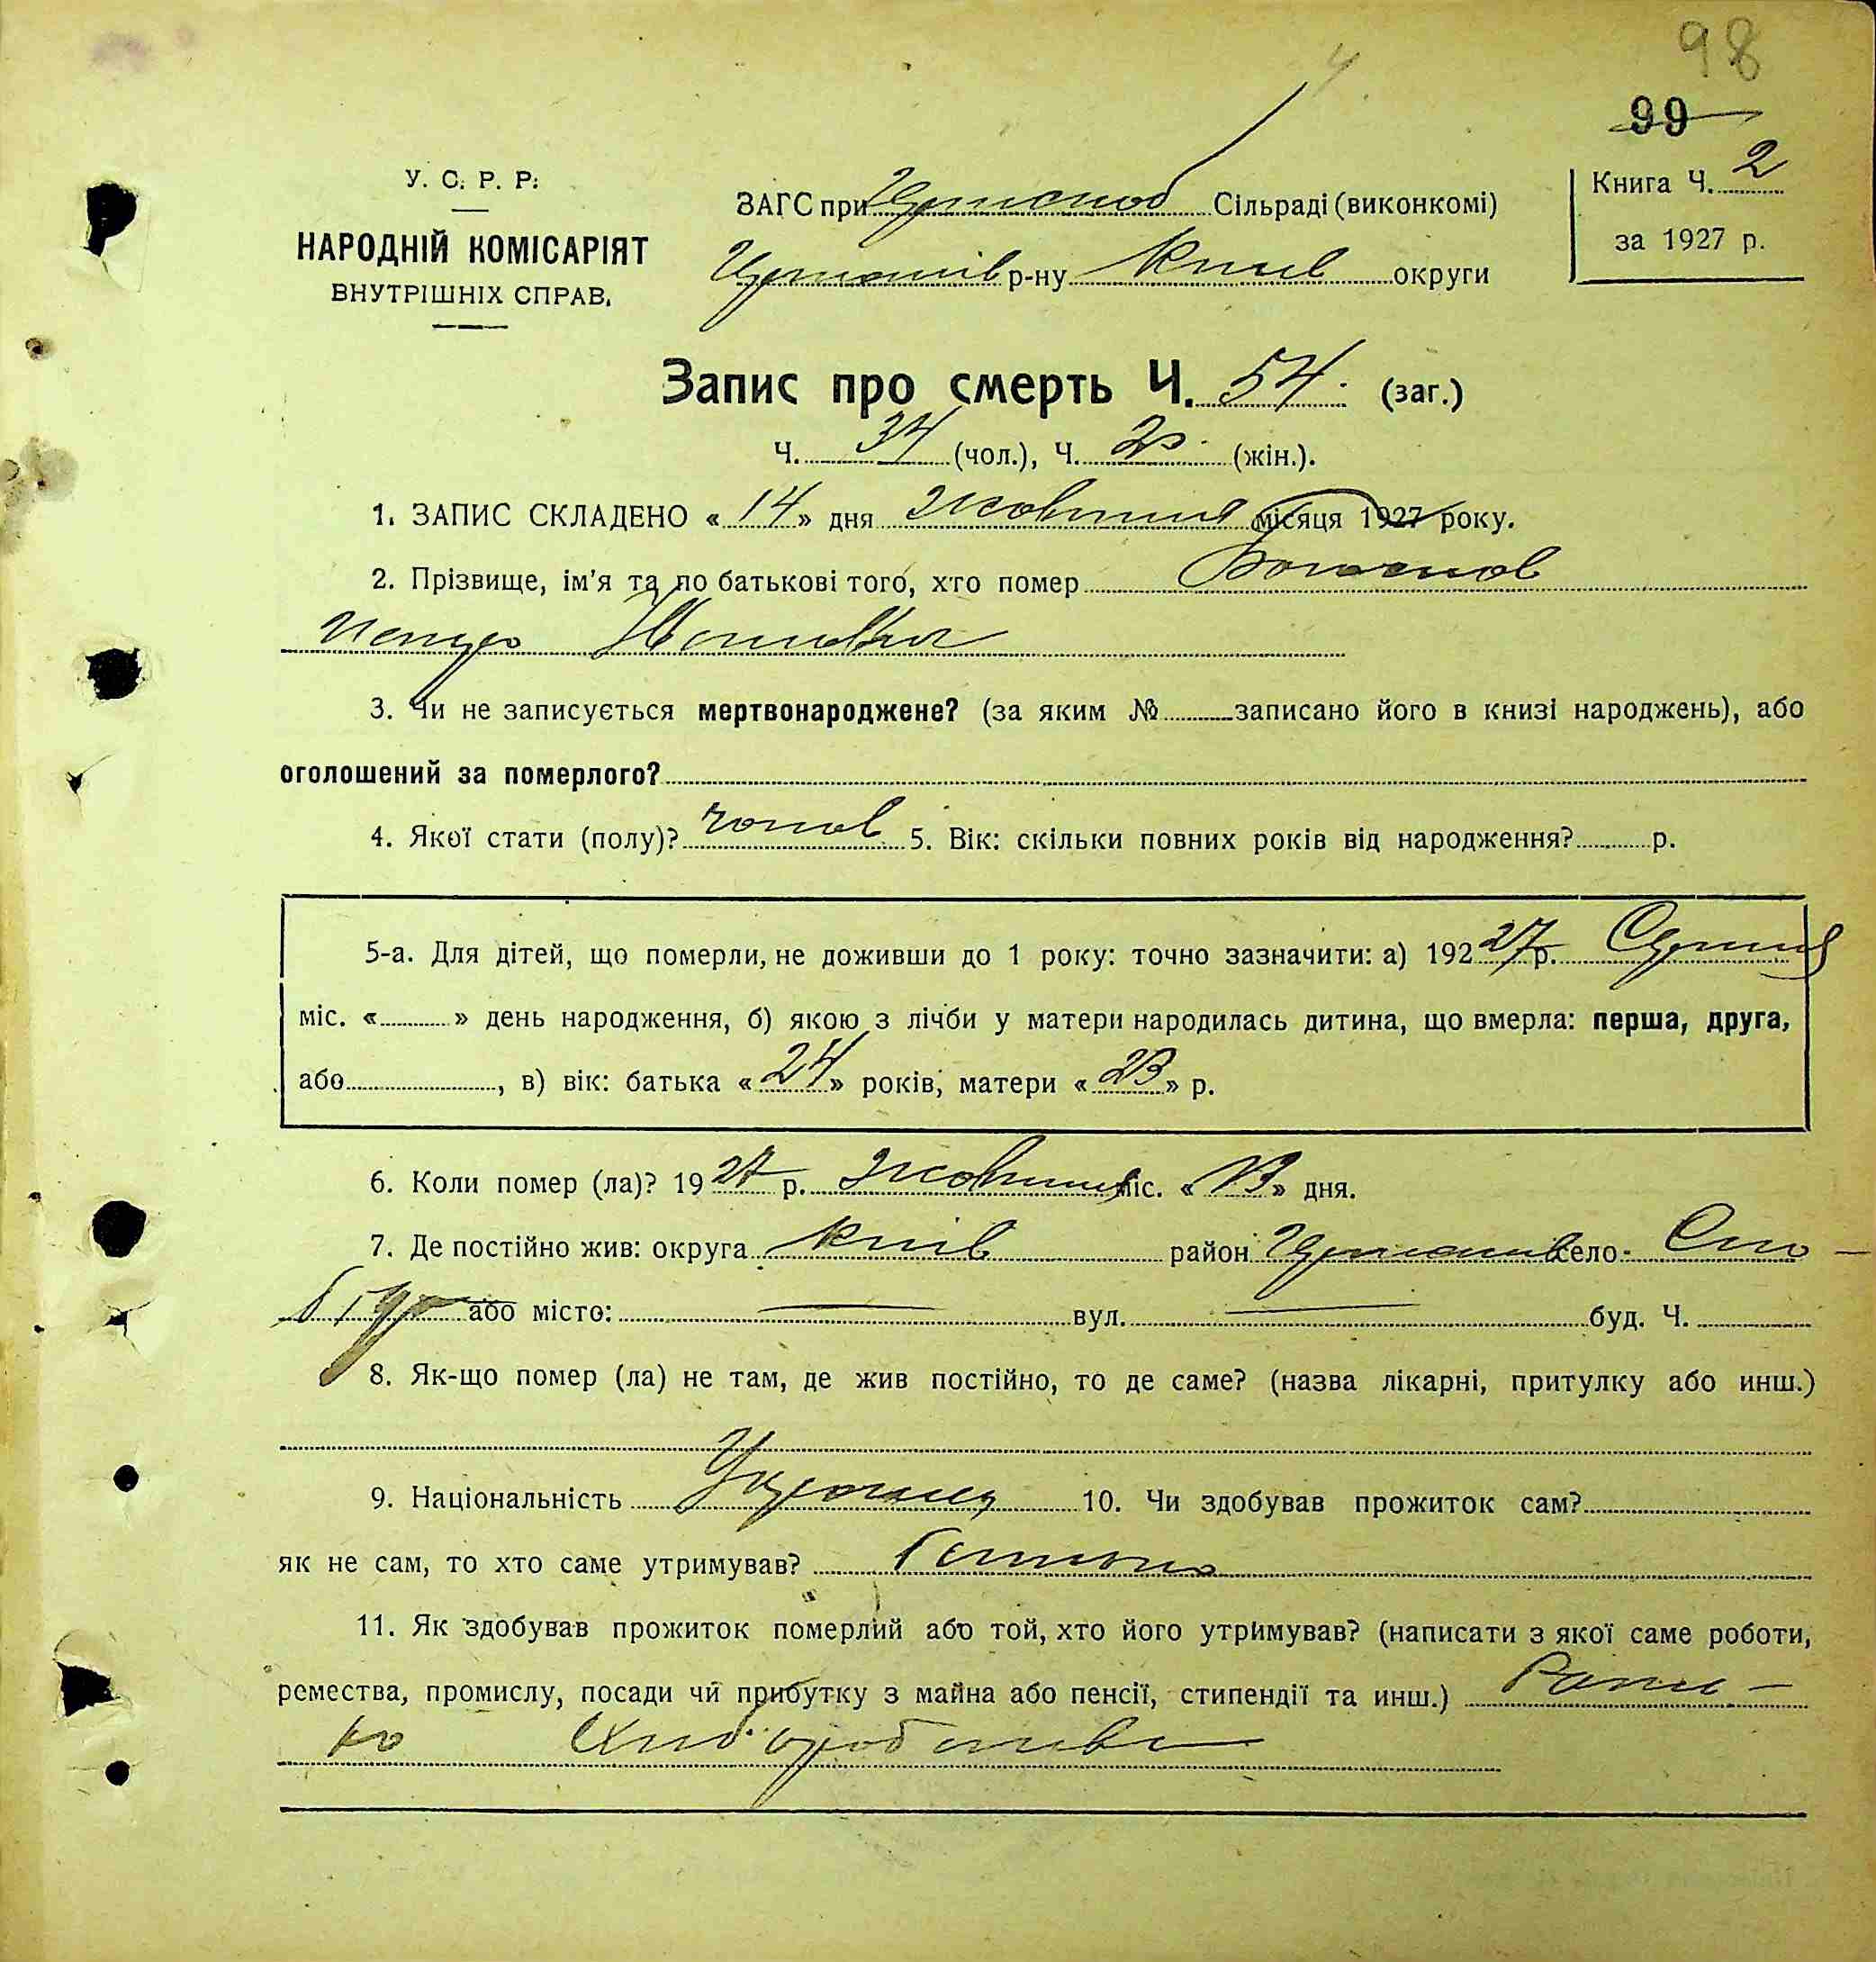 98
99
У. С. Р. Р.
НАРОДНІЙ КОМІСАРІЯТ
ВНУТРІШНІХ СПРАВ.
ЗАГС при Сільраді (виконкомі)
р-ну Київ округи
Книга Ч. 2
за 1927 р.
Запис про смерть Ч. 54. (заг.)
Ч. 34 (чол.), Ч. 20. (жін.).
1. ЗАПИС СКЛАДЕНО « 14 » дня жовтня місяця 1927 року.
2. Прізвище, ім'я та по батькові того, хто помер
Петро
3. Чи не записується мертвонароджене? (за яким № записано його в книзі народжень), або
оголошений за померлого?
4. Якої стати (полу)? чолов 5. Вік: скільки повних років від народження? р.
5-а. Для дітей, що померли, не доживши до 1 року: точно зазначити: а) 192 27 р. Серпня
міс. « » день народження, б) якою з лічби у матери народилась дитина, що вмерла: перша, друга,
або , в) вік: батька « 24 » років, матери « 23 » р.
6. Коли помер (ла)? 19 27 р. жовтня міс. « 13 » дня.
7. Де постійно жив: округа Київ район село
або місто: вул. буд. Ч.
8. Як-що помер (ла) не там, де жив постійно, то де саме? (назва лікарні, притулку або инш.)
9. Національність Українец 10. Чи здобував прожиток сам?
як не сам, то хто саме утримував? Батько
11. Як здобував прожиток померлий або той, хто його утримував? (написати з якої саме роботи,
ремества, промислу, посади чи прибутку з майна або пенсії, стипендії та инш.)
Хліборобство